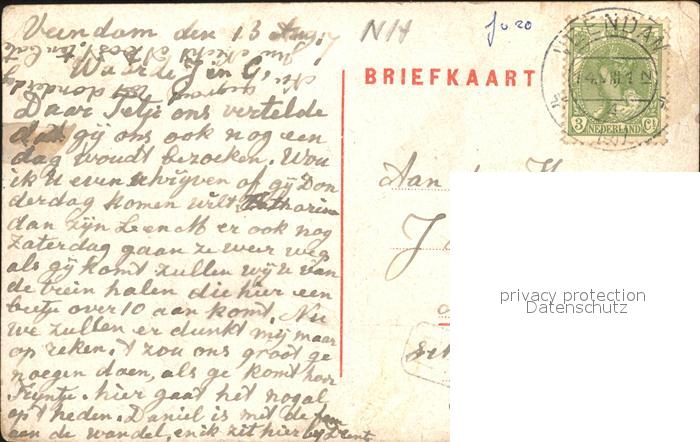 Veendam den 13 Aug. 17
Waarde J en G,
Daar Tetje ons vertelde
dat gij ons ook nog een
dag woudt bezoeken. Wou
ik u even schrijven of gij Don
derdag komen wilt
dan zijn L en M er ook nog
Zaterdag gaan ze weer weg
als gij komt zullen wij u van
de trein halen die hier een
beetje over 10 aan komt. Nu
we zullen er dunkt mij maar
op reken. t zou ons groot ge
noegen doen, als ge komt hoor
Trijntje. hier gaat het nogal
op t heden. Daniel is met de
aan de wandel, en ik zit hier bij
N14
Ju 20
BRIEFKAART
VEENDAM
3 NEDERLAND Ct
Aan
J
privacy protection
Datenschutz